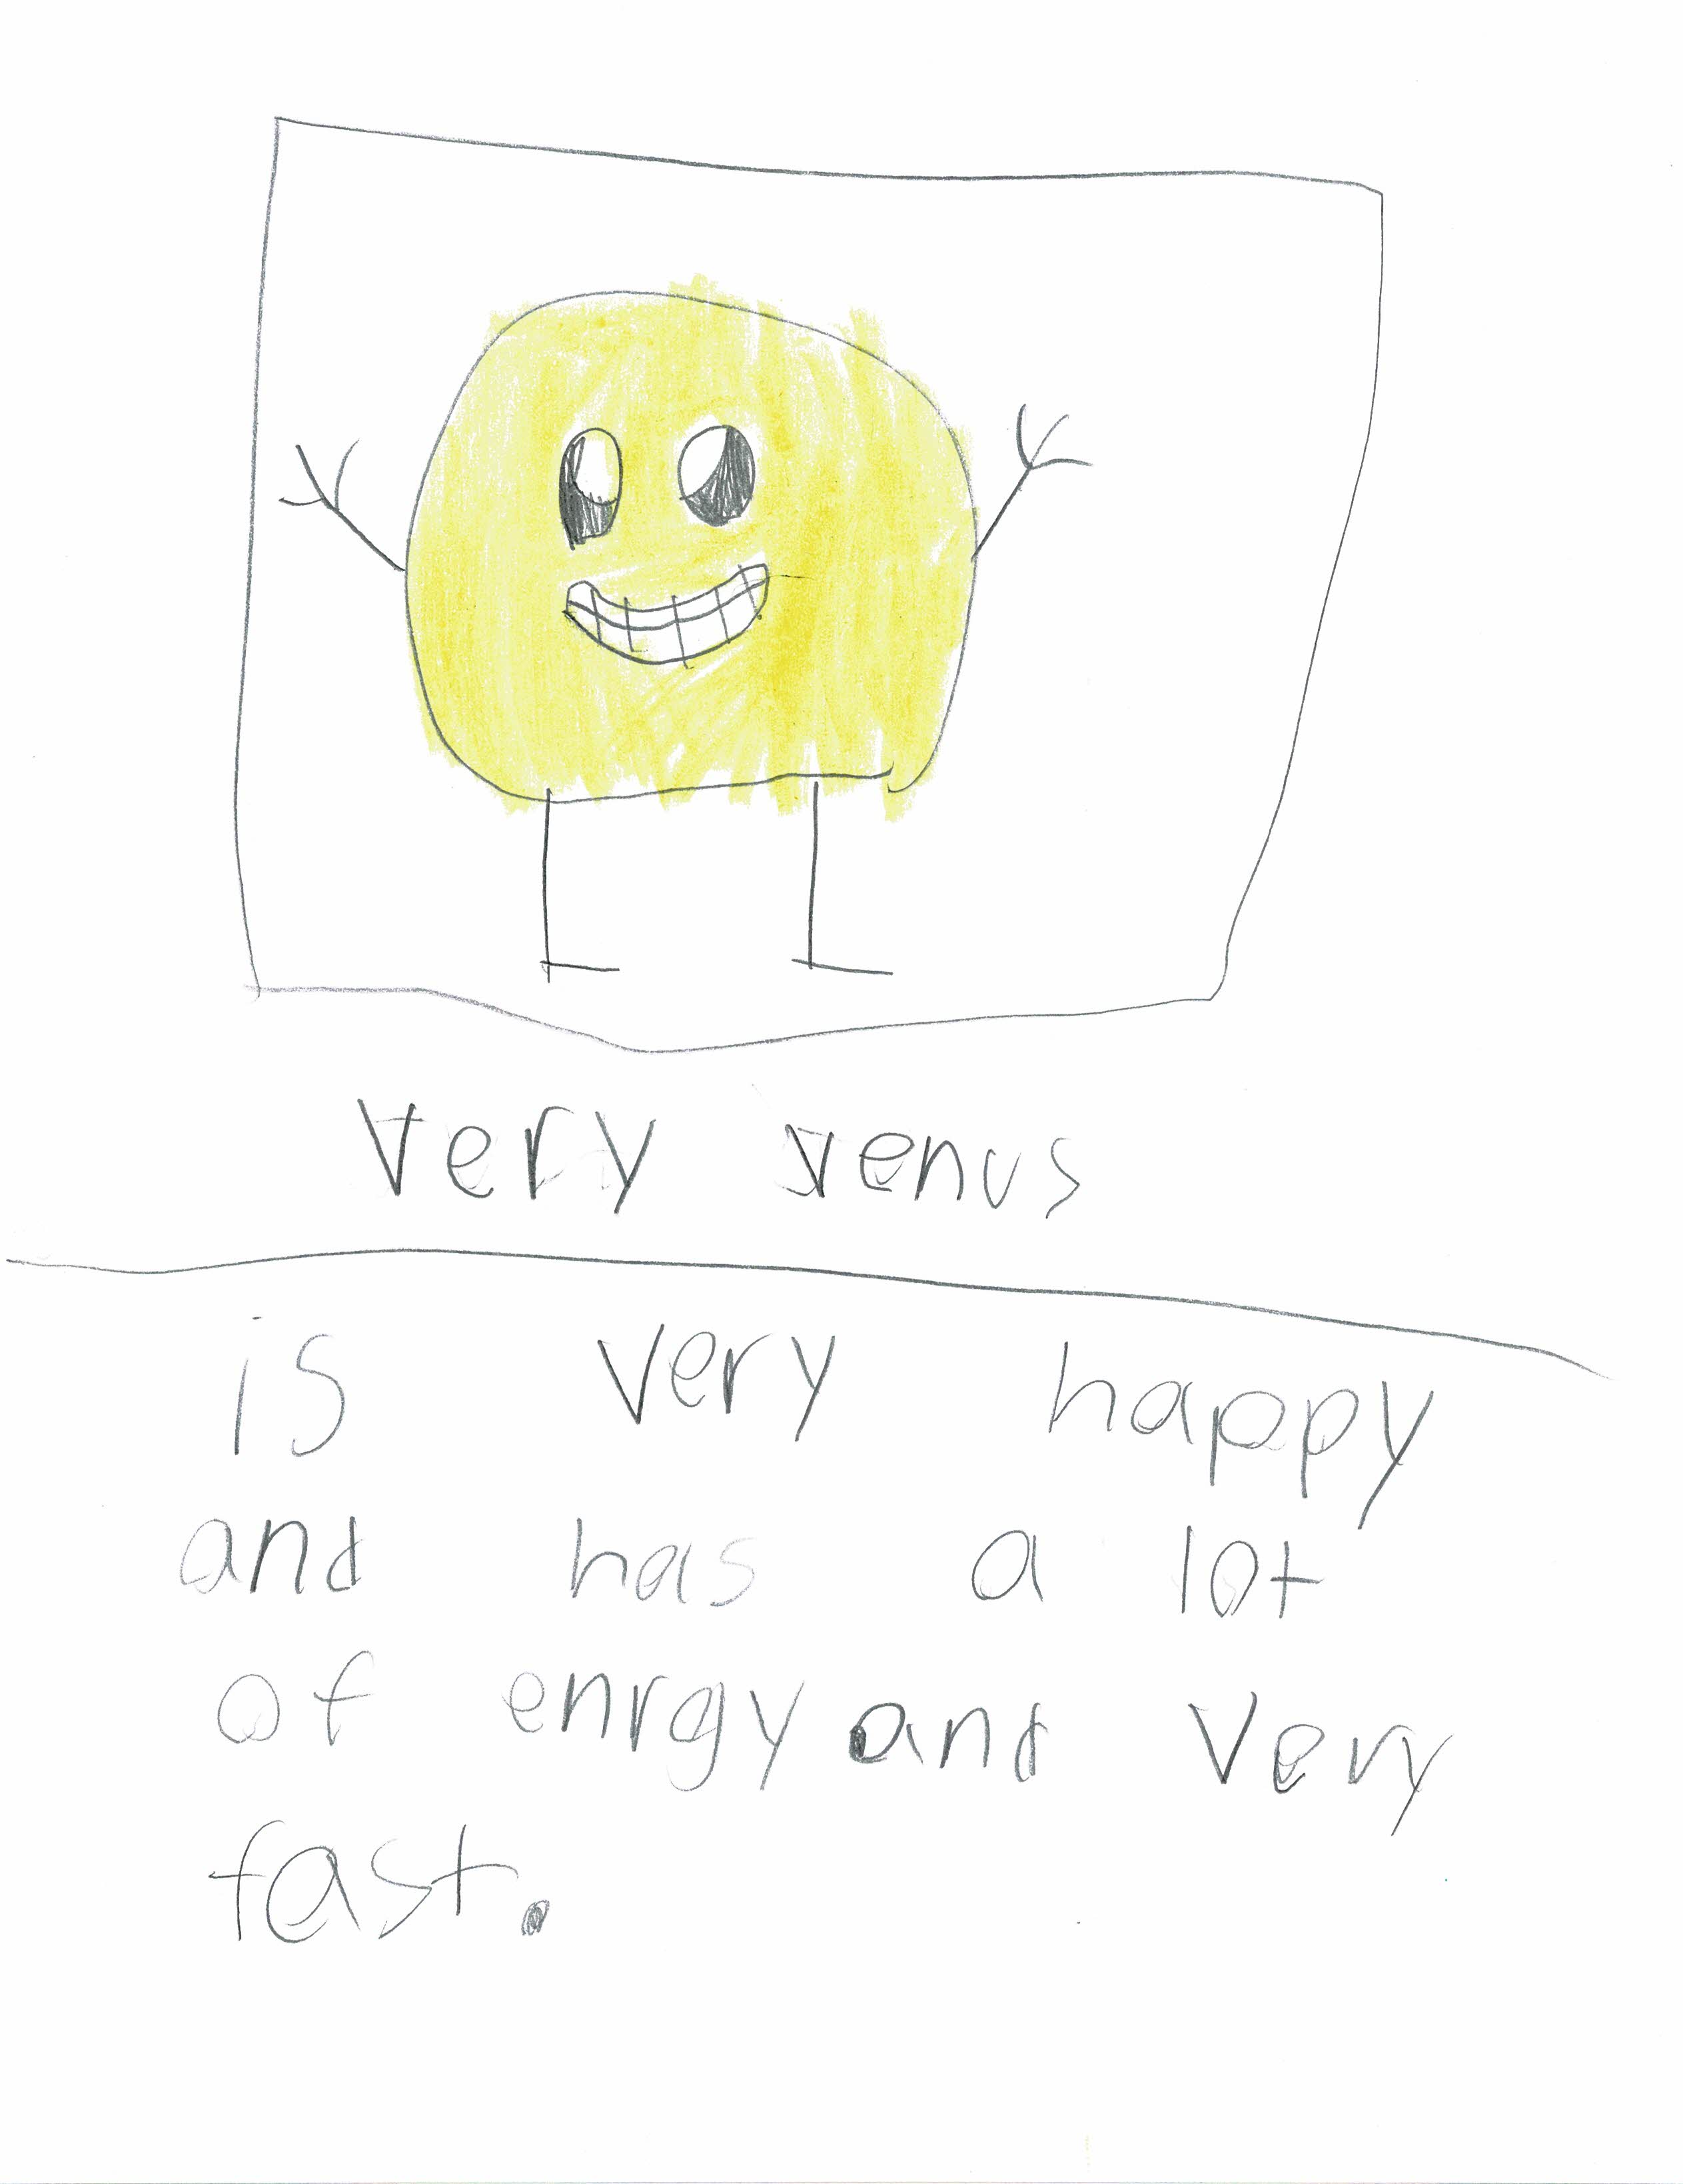 Very venus
is very happy
and has a lot
of enrgy and very
fast.